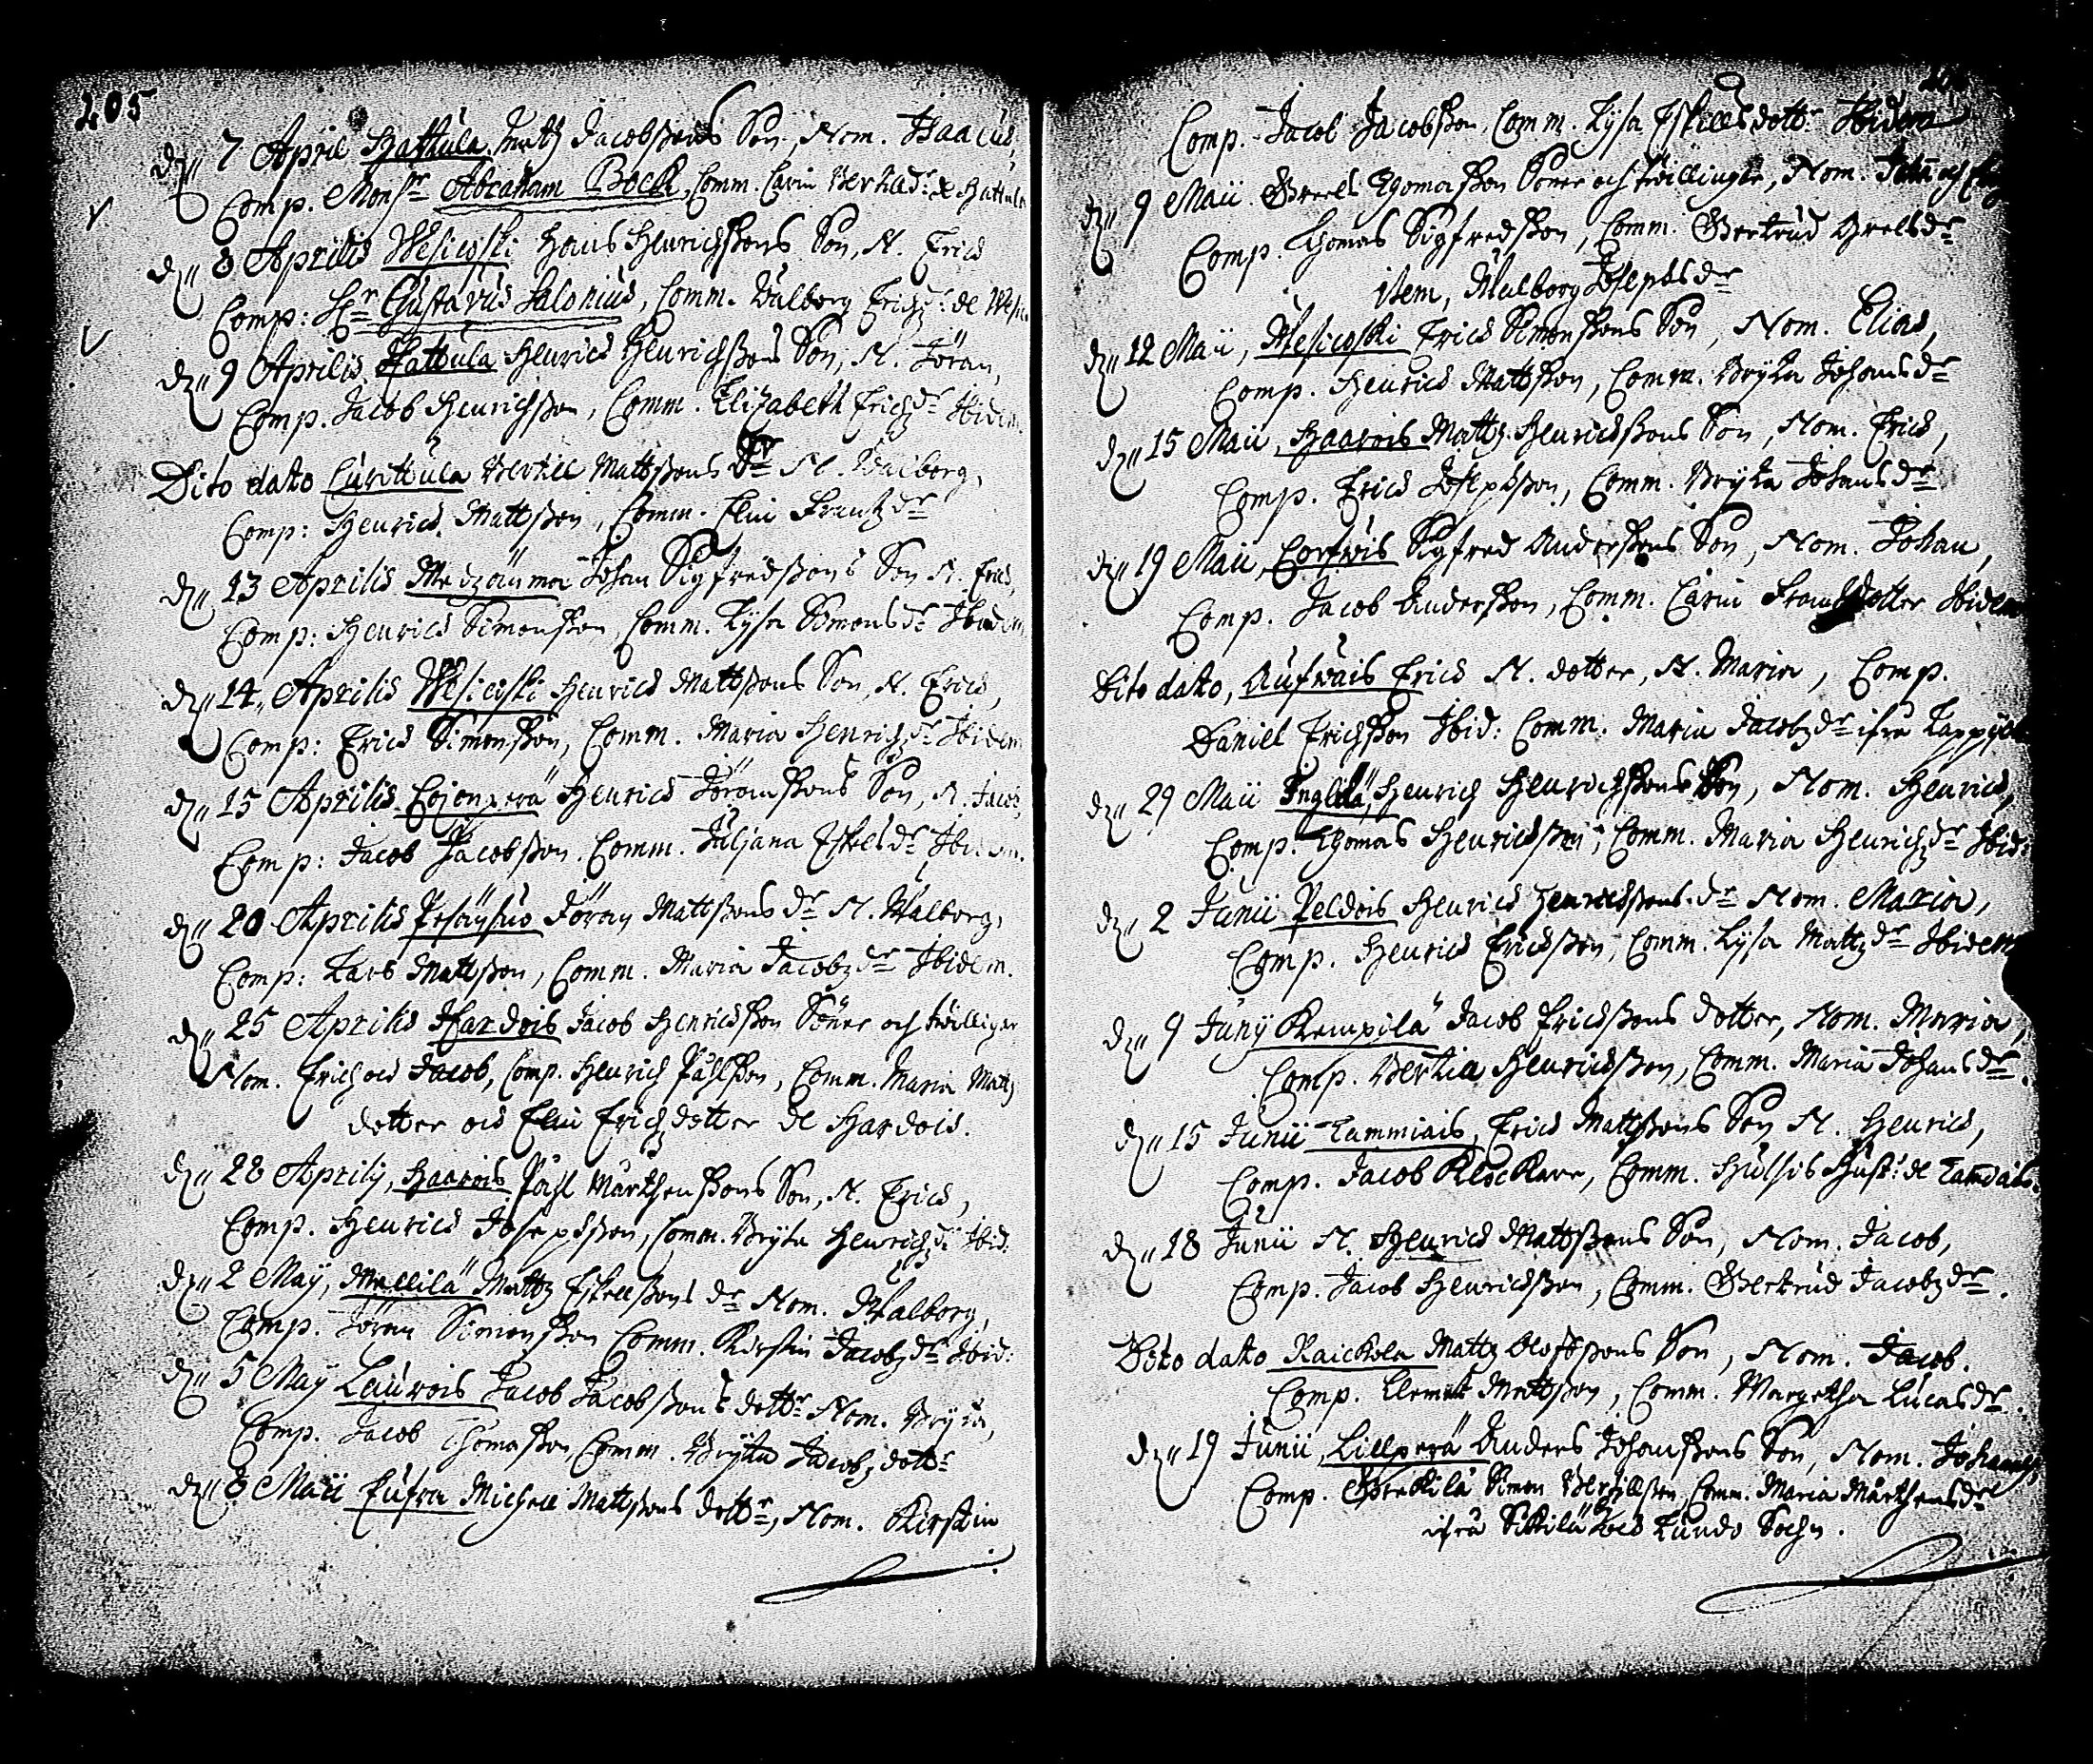 205
d. 7 April Hattula Matz Jacobssons Son, Nom. Isaacus,
Comp. Monsr Abraham Bock, Comm. Carin Bertilsdr de Hattula
d. 8 Aprilis Wesicoski Hans Henrichssons Son, N. Erich
Comp: Hr Gustavus Salonius, Comm. Walborg Erichzdr: de Wesic
d. 9 Aprilis Hattula Henrich Henrichssons Son, N. Jöran,
Comp. Jacob Henrichsson, Comm. Elizabeth Erichdr Ibidem
Dito dato Curittula Bertill Mattssons Dr N. Walborg,
Comp: Henrich Mattsson, Comm. Elin Frantzdr
d. 13 Aprilis Medzänmaa Johan Sigfredssons Son N. Erich,
Comp: Henrich Simonsson, Comm. Lysa Simonsdr Ibidem
d. 14 Aprilis Wesicoski Henrich Mattssons Son, N. Erich,
Comp: Erich Simonsson, Comm. Maria Henrichzdr Ibidem
d. 15 Aprilis Cojonperä Henrich Jöranssons Son, N. Jacob,
Comp: Jacob Jacobsson. Comm. Juljana Eskelsdr Ibidem.
d. 20 Aprilis Jöran Mattssons dr N. Walborg,
Comp: Lars Mattsson, Comm. Maria Jacobzdr Ibidem.
d. 25 Aprilis Hardois Jacob Henrichsson Söner och twillingar
Nom. Erich och Jacob, Comp. Henrich Påhlsson, Comm. Maria Matz
dotter och Elin Erichzdotter de Hardois.
d. 28 Aprilij, Haarois Påhl Mårthenssons Son, N. Erich,
Comp. Henrich Josephsson, Comm. Bryta Henrichzdr Ibid:
d. 2 Maij, Mällilä Mattz Eskelssons dr Nom. Walborg,
Comp. Jöran Simonsson Comm. Kirstin Jacobzdr Ibid:
d. 5 Maij Laurois Jacob Jacobssons dottr Nom. Bryta,
Comp. Jacob Thomasson, Comm. Bryta Jacobzdottr
d. 8 Maii Eufra Michell Mattssons dottr, Nom. Kirstin
Comp. Jacob Jacobsson, Comm. Lysa Eskellsdottr Ibidem
d. 9 Maii Greels Thomasson Söner och twillingar, Nom. Johan och
Comp. Thomas Sigfredsson, Comm. Gertrud Grelsdr
item, Walborg Josephsdr
d. 12 Maii, Wesicoski Erich Simonssons Son, Nom. Elias,
Comp. Henrich Mattsson, Comm. Bryta Johansdr
d. 15 Maii, Haarois Mattz Henrichssons Son, Nom. Erich,
Comp. Erich Josephsson, Comm. Bryta Johansdr
d. 19 Maii, Corfwois Sigfred Anderssons Son, Nom. Johan,
Comp. Jacob Andersson, Comm. Carin Frantzdotter Ibidem
Dito dato, Aufwais Erich N. dotter, N. Maria, Comp.
Daniel Erichsson Ibid: Comm. Maria Jacobzdr ifrå
d. 29 Maii Inglilä, Henrich Henrichssons Son, Nom. Henrich,
Comp. Thomas Henrichsson, Comm. Maria Henrichzdr Ibid:
d. 2 Junii Peldois Henrich Henrichssons dr Nom. Maria,
Comp. Henrich Erichsson, Comm. Lysa Mattzdr Ibidem
d. 9 Junij Kempilä Jacob Erichssons dotter, Nom. Maria,
Comp. Bertill Henrichsson, Comm. Maria Johansdr.
d. 15 Junii Tammiais, Erich Mattssons Son N. Henrich,
Comp. Jacob Klockare, Comm. Hust: de
d. 18 Junii N. Henrich Mattssons Son, Nom. Jacob,
Comp. Jacob Henrichsson, Comm. Gertrud Jacobzdr.
Dito dato Raickola Mattz Olofssons Son, Nom. Jacob.
Comp. Clemet Mattsson, Comm. Margetha Lucasdr.
d. 19 Junii, Lillperä Anders Johanssons Son, Nom. Johannes,
Comp. Simon Bertillsson, Comm. Maria Mårthensdr
ifrå Sikilä Lundo Sochn.